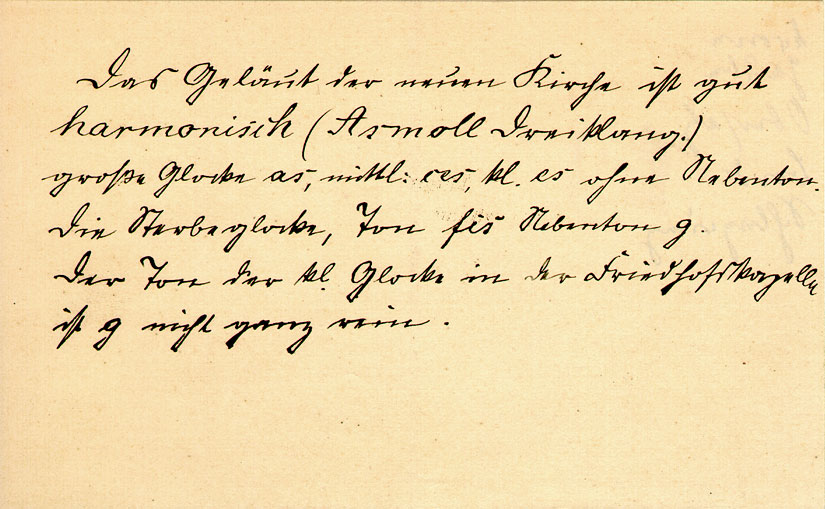 Das Geläut der neuen Kirche ist gut
harmonisch (Asmoll Dreiklang.)
große Glocke as, mittl: ces, kl. es ohne Nebenton.
Die Sterbeglocke, Ton fis Nebenton g.
Der Ton der kl. Glocke in der Friedhofskapelle
ist g nicht ganz rein.